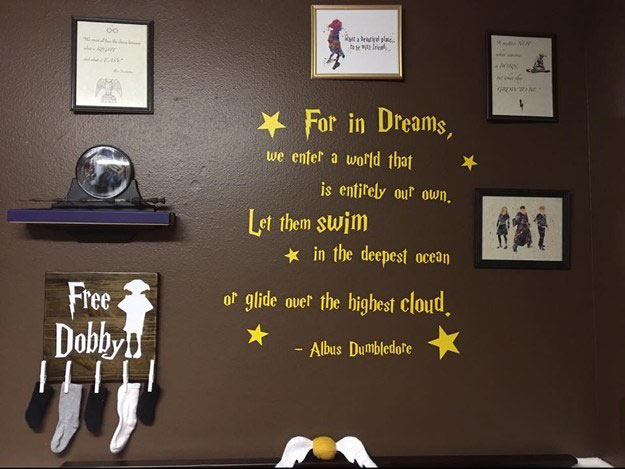 "We must all face the choice between
what is RIGHT
and what is EASY"
What a beautiful place...
to be with friends...
It matters NOT
what someone
is BORN,
but what they
GROW TO BE.
For in Dreams,
we enter a world that
is entirely our own.
Let them swim
in the deepest ocean
or glide over the highest cloud.
- Albus Dumbledore
Free
Dobby